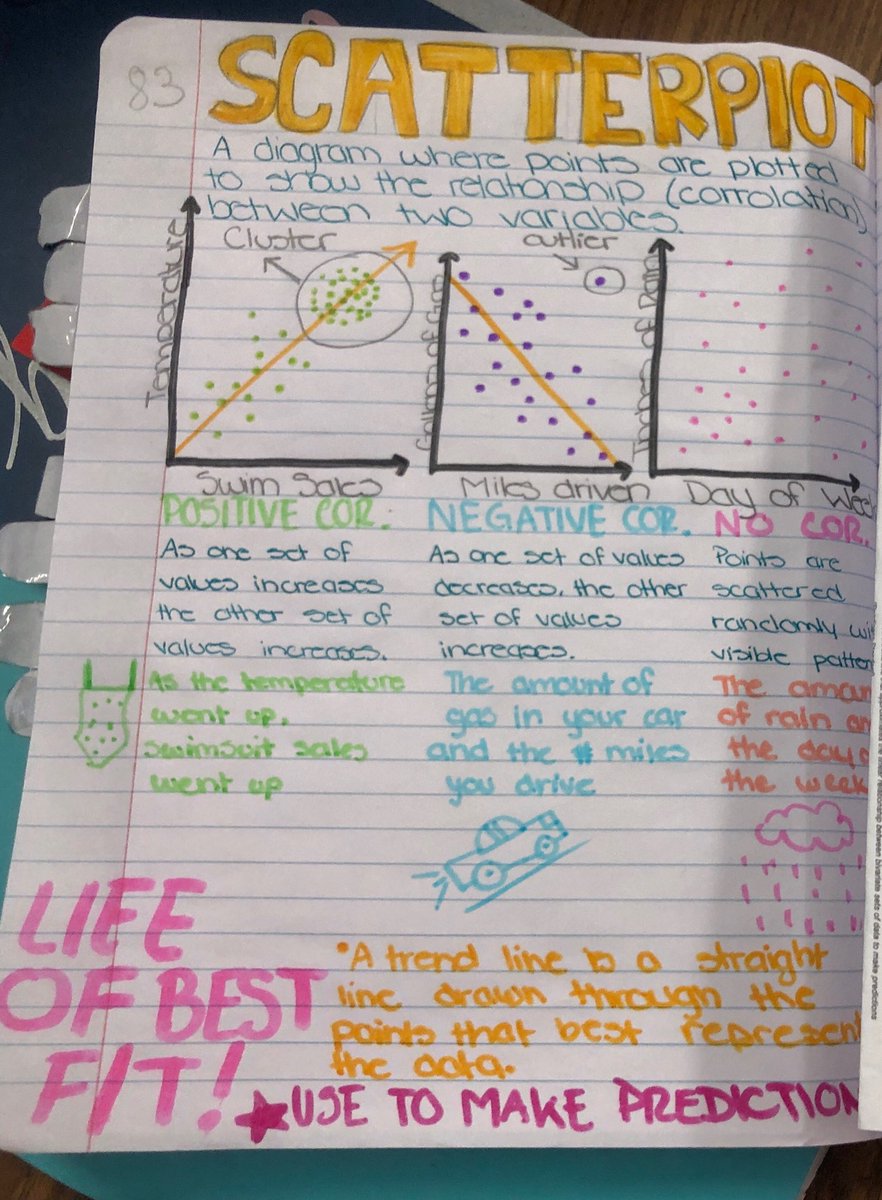 83
SCATTERPLOT
A diagram where points are plotted
to show the relationship (corrolation)
between two variables.
Temperature
Cluster
Swim Sales
Gallons of Gas
outlier
Miles driven
Inches of Rain
Day of Week
POSITIVE COR.
As one set of
values increases
the other set of
values increases.
As the temperature
went up,
swimsuit sales
went up
NEGATIVE COR.
As one set of values
decreases, the other
set of values
increases.
The amount of
gas in your car
and the # miles
you drive
NO COR.
Points are
scattered
randomly wi
visible patter
The amou
of rain an
the day o
the week
LIFE
OF BEST
FIT!
•A trend line is a straight
line drawn through the
points that best represent
the data.
★USE TO MAKE PREDICTION
linear relationship between bivariate sets of data to make predictions